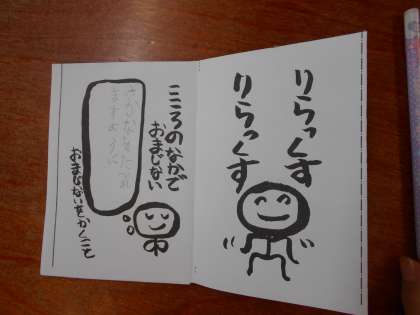 りらっくす
りらっくす
こころのなかで
おまじない
ますように
おまじないをかくこと